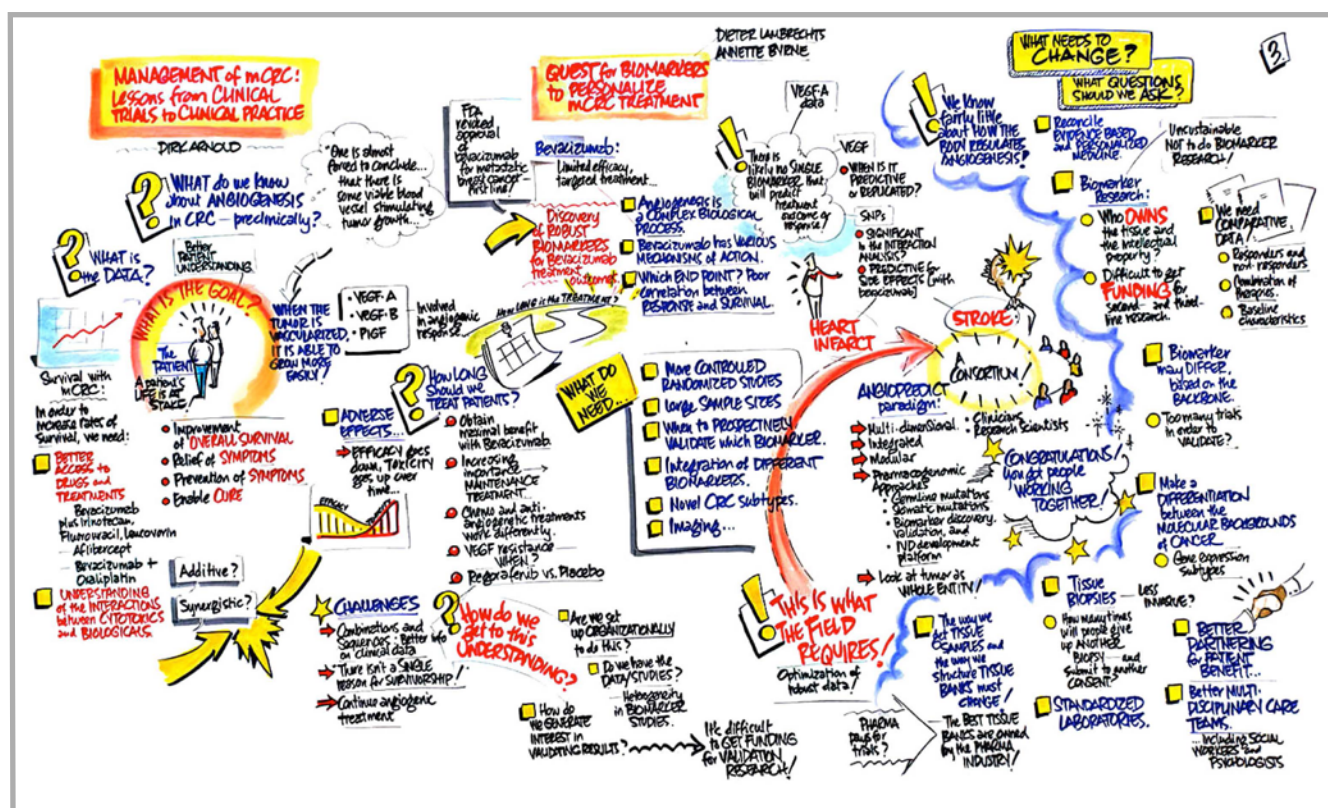 MANAGEMENT of mCRC:
Lessons from CLINICAL
TRIALS to CLINICAL PRACTICE
DIRK ARNOLD
WHAT do we KNOW
about ANGIOGENESIS
in CRC - preclinically?
"One is almost
forced to conclude...
that there is
some viable blood
vessel stimulating
tumor growth...
WHAT is
the DATA?
Better
PATIENT
UNDERSTANDING
WHAT IS THE GOAL?
The
PATIENT
A patient's
LIFE IS AT
STAKE
Improvement
of OVERALL SURVIVAL
Relief of SYMPTOMS
Prevention of SYMPTOMS
Enable CURE
Survival with
mCRC:
In order to
increase rates of
Survival, we need:
BETTER
ACCESS to
DRUGS and
TREATMENTS
Bevacizumab
plus Irinotecan,
Flurouracil, Leucovorin
- Aflibercept
- Bevacizumab +
Oxaliplatin
UNDERSTANDING
of the INTERACTIONS
between CYTOTOXICS
and BIOLOGICALS.
Additive?
Synergistic?
WHEN THE
TUMOR IS
VASCULARIZED,
IT IS ABLE TO
GROW MORE
EASILY!
VEGF-A
VEGF-B
PlGF
Involved
in angiogenic
response
ADVERSE
EFFECTS...
EFFICACY goes
down, TOXICITY
goes up over
time...
EFFICACY
CHALLENGES
Combinations and
Sequences: Better info
on clinical data
There isn't a SINGLE
reason for SURVIVORSHIP!
Continue angiogenic
treatment
HOW LONG
Should we
TREAT PATIENTS?
Obtain
maximal benefit
with Bevacizumab.
Increasing
importance
MAINTENANCE
TREATMENT...
Chemo and anti-
angiogenetic treatments
work differently.
VEGF resistance
WHEN?
Regorafenib vs. Placebo
How LONG is the TREATMENT?
How do we
get to this
UNDERSTANDING?
Are we set
up ORGANIZATIONALLY
to do this?
Do we have the
DATA/STUDIES?
Heterogeneity
in BIOMARKER
STUDIES.
How do
we GENERATE
INTEREST in
VALIDATING RESULTS?
It's difficult
to GET FUNDING
for VALIDATION
RESEARCH!
QUEST for BIOMARKERS
to PERSONALIZE
mCRC TREATMENT
DIETER LAMBRECHTS
ANNETTE BYRNE
FDA
revoked
approval
of
bevacizumab
for metastatic
breast cancer-
first line!
Bevacizumab:
Limited efficacy,
targeted treatment...
Discovery
of ROBUST
BIOMARKERS
for Bevacizumab
treatment
outcomes.
Angiogenesis is
a COMPLEX BIOLOGICAL
PROCESS.
Bevacizumab has VARIOUS
MECHANISMS of ACTION.
Which END POINT? Poor
correlation between
RESPONSE and SURVIVAL.
VEGF-A
data
There is
likely no SINGLE
BIOMARKER that
will predict
treatment
outcome or
response!
VEGF
WHEN IS IT
PREDICTIVE
or REPLICATED?
SNPs
SIGNIFICANT
in the INTERACTION
ANALYSIS?
PREDICTIVE for
SIDE EFFECTS [with
bevacizumab]
HEART
INFARCT
STROKE:
WHAT DO
WE
NEED...
More CONTROLLED
RANDOMIZED STUDIES
Large SAMPLE SIZES
When to PROSPECTIVELY
VALIDATE which BIOMARKER.
Integration of DIFFERENT
BIOMARKERS.
Novel CRC Subtypes.
Imaging...
A
CONSORTIUM!
ANGIOPREDICT
paradigm:
Multi-dimensional
Integrated
Modular
Pharmacogenomic
Approaches
Germline mutations
Somatic mutations
Biomarker discovery,
validation, and
IVD development
platform
Look at tumor as
WHOLE ENTITY!
Clinicians
Research Scientists
CONGRATULATIONS!
You got people
WORKING
TOGETHER!
THIS IS WHAT
THE FIELD
REQUIRES!
Optimization of
robust data!
PHARMA
pays for
trials?
The way we
get TISSUE
SAMPLES and
the way we
structure TISSUE
BANKS must
CHANGE!
- The BEST TISSUE
BANKS are owned
by the PHARMA
INDUSTRY!
WHAT NEEDS TO
CHANGE?
WHAT QUESTIONS
SHOULD WE ASK?
3.
We know
fairly little
about HOW THE
BODY REGULATES
ANGIOGENESIS!
Reconcile
EVIDENCE BASED
and PERSONALIZED
MEDICINE.
Unsustainable
Not to do BIOMARKER
RESEARCH!
Biomarker
Research:
Who OWNS
the tissue and
the intellectual
property?
Difficult to get
FUNDING for
second- and third-
line research.
We need
COMPARATIVE
DATA
Responders
and non-responders
Combination of
therapies.
Baseline
characteristics
Biomarker
may DIFFER,
based on the
BACKBONE.
Too many trials
in order to
VALIDATE?
Make a
DIFFERENTIATION
between the
MOLECULAR BACKGROUNDS
of CANCER
Gene expression
subtypes
Tissue
BIOPSIES
Less
INVASIVE?
How many times
will people give
up ANOTHER
BIOPSY - and
submit to another
CONSENT?
STANDARDIZED
LABORATORIES.
BETTER
PARTNERING
for PATIENT
BENEFIT...
Better MULTI-
DISCIPLINARY CARE
TEAMS.
...INCLUDING SOCIAL
WORKERS and
PSYCHOLOGISTS